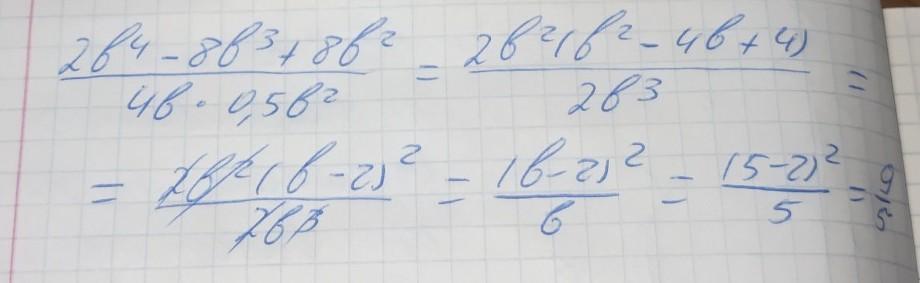 (2b⁴ - 8b³ + 8b²)/(4b · 0,5b²) = (2b²(b² - 4b + 4))/(2b³) =
= (2b²(b - 2)²)/(2b³) = (b - 2)²/b = (5 - 2)²/5 = 9/5